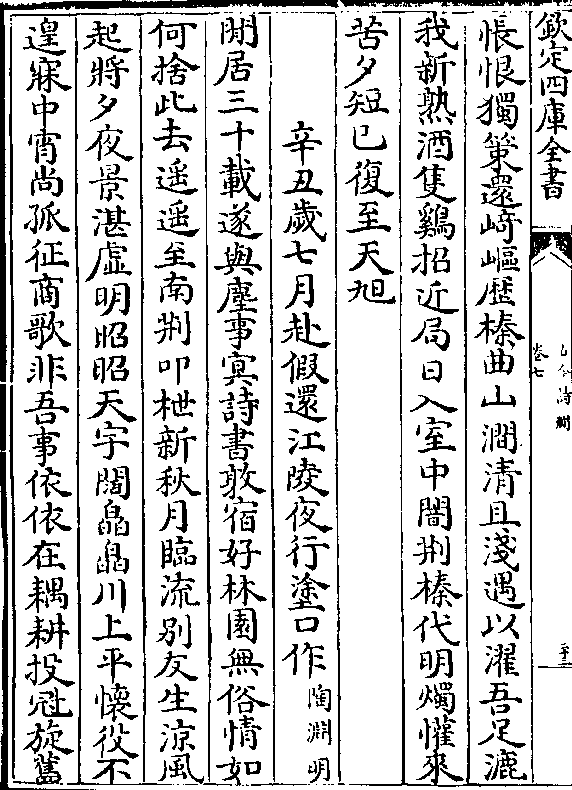 欽定四庫全書
古今詩刪
卷七
二十三
悵恨獨策還崎嶇歴榛曲山澗清且淺遇以濯吾足漉
我新熟酒隻鷄招近局日入室中闇荆榛代明燭懽來
苦夕短已復至天旭
辛丑歲七月赴假還江陵夜行塗口作 陶淵明
閒居三十載遂與塵事冥詩書敦宿好林園無俗情如
何捨此去遥遥至南荆叩枻新秋月臨流别友生涼風
起將夕夜景湛虚明昭昭天宇闊皛皛川上平懷役不
遑寐中宵尚孤征商歌非吾事依依在耦耕投冠旋舊